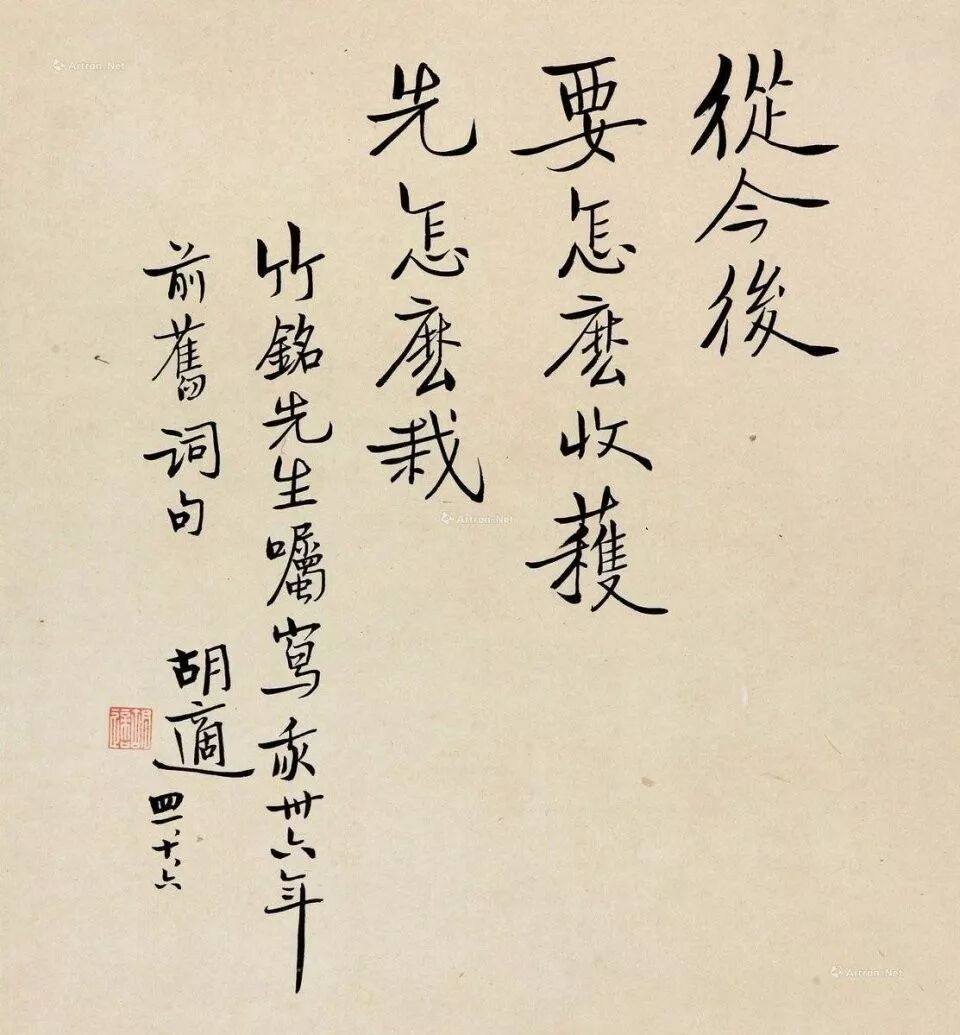 從今後
要怎麼收穫
先怎麼栽
竹銘先生囑寫我卅六年
前舊詞句
胡適
四一、十、六
胡適
Artron.Net
Artron.Net
Artron.Net